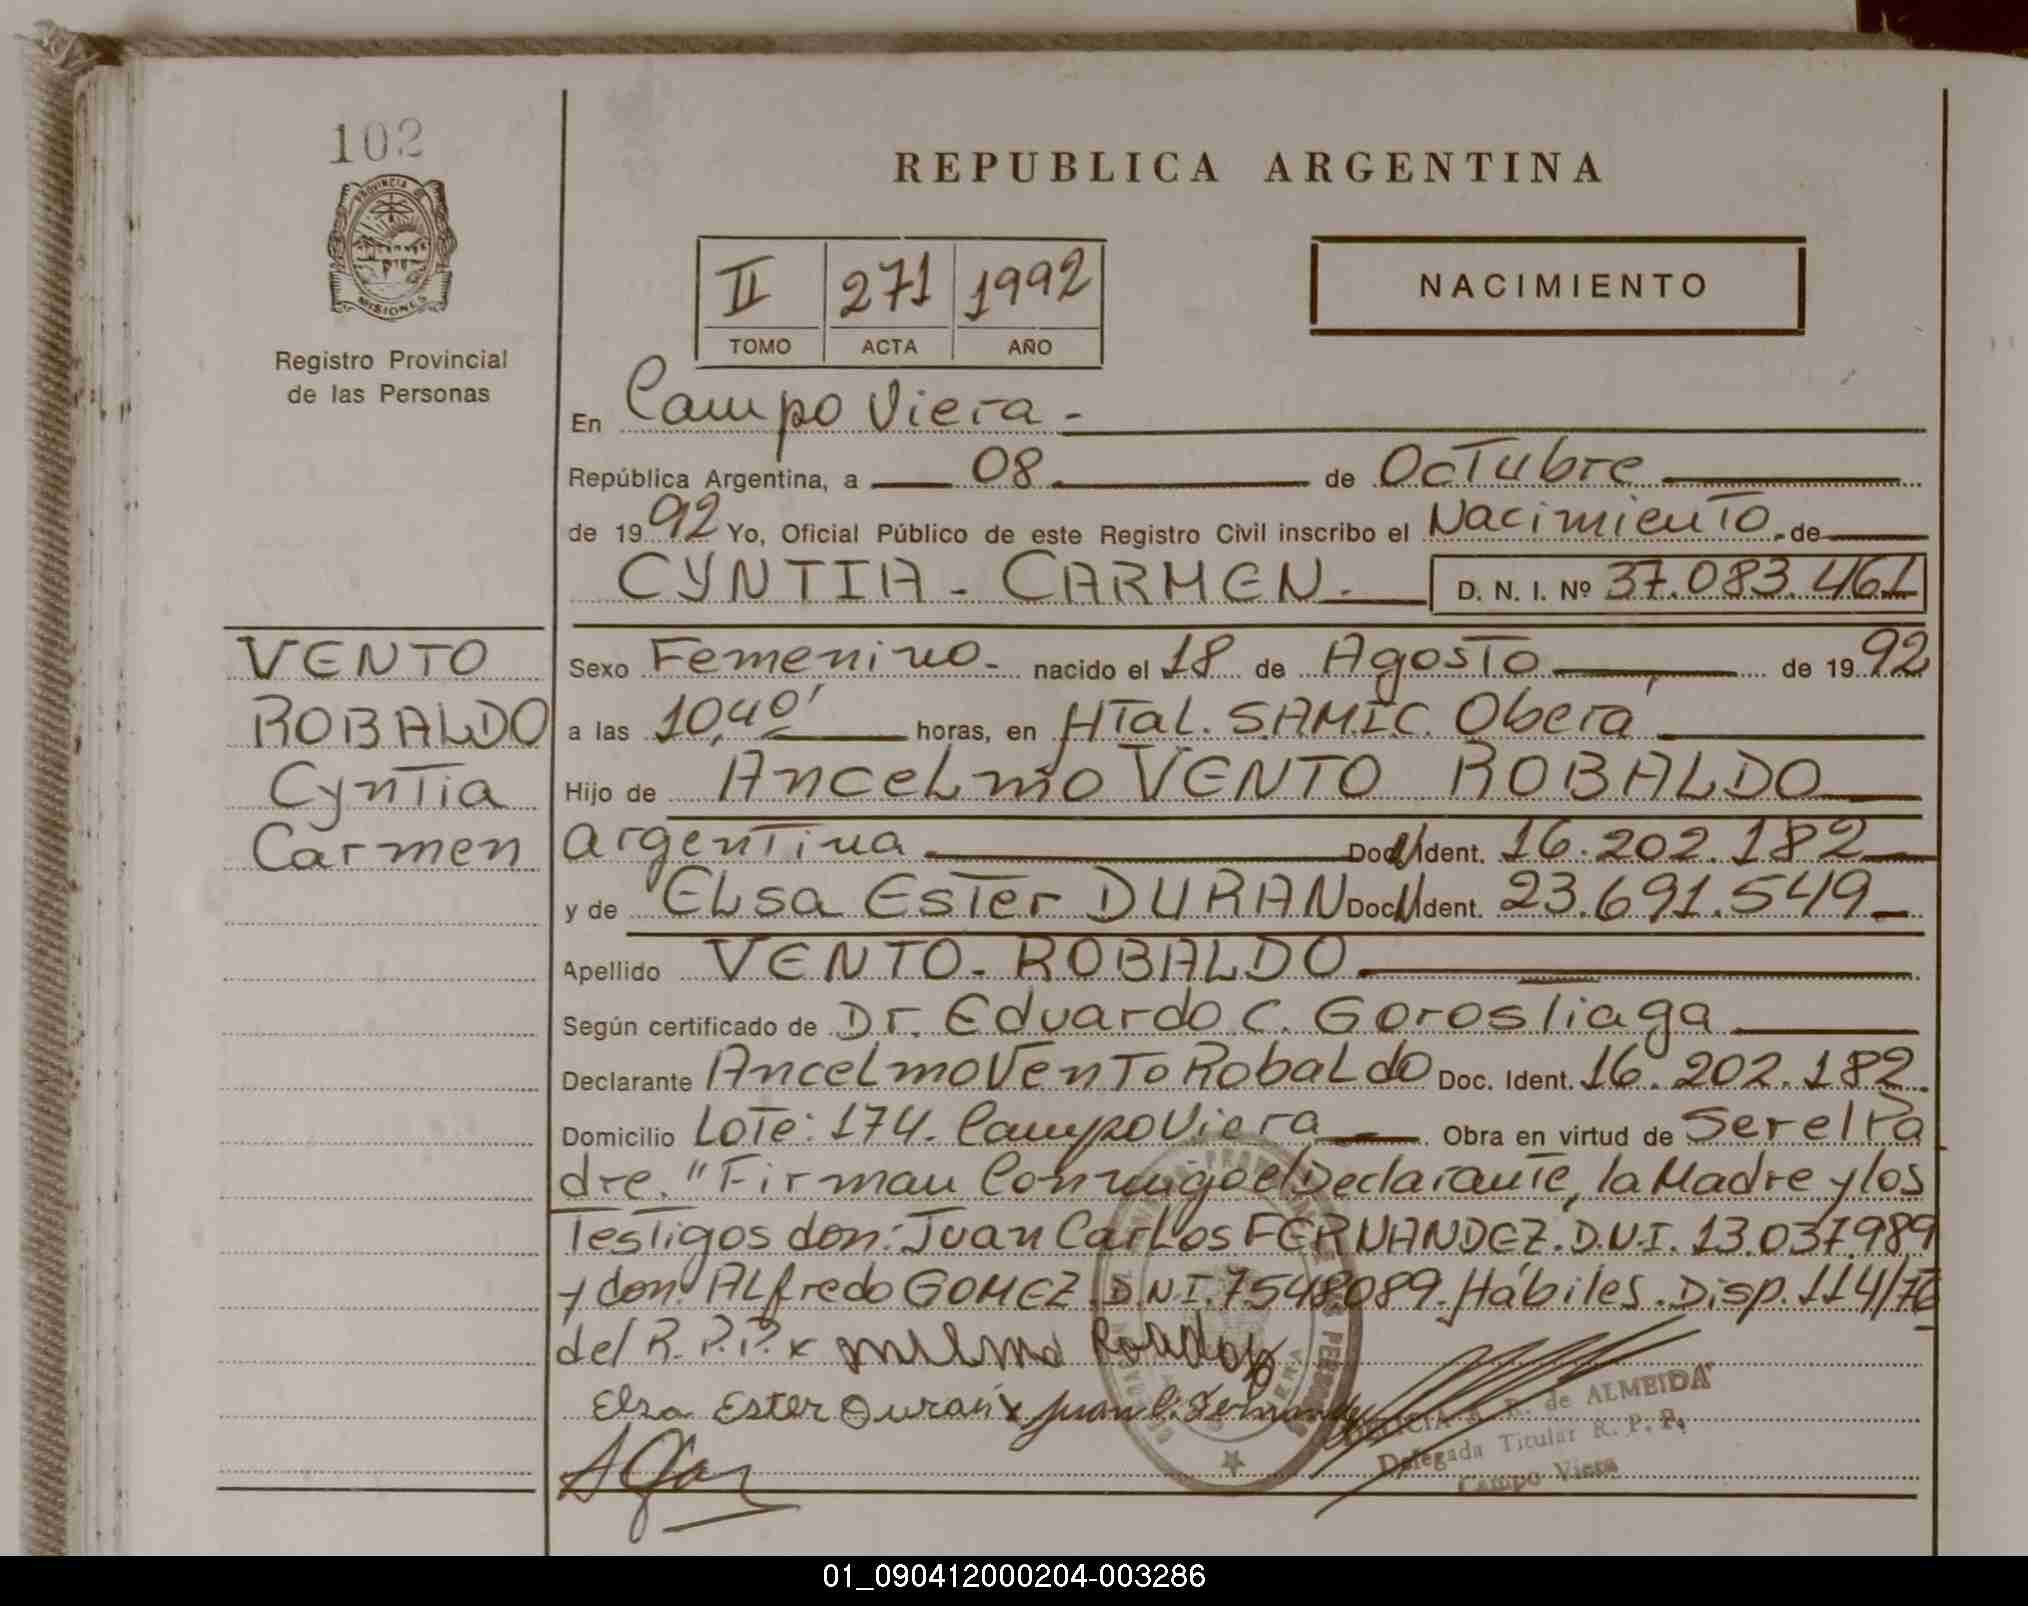 102
PROVINCIA DE
MISIONES
Registro Provincial
de las Personas
REPUBLICA ARGENTINA
II 271 1992
TOMO ACTA AÑO
NACIMIENTO
En Campo Viera -
República Argentina, a 08 de Octubre
de 1992 Yo, Oficial Público de este Registro Civil inscribo el Nacimiento de
CYNTIA - CARMEN. D. N. I. Nº 37.083.461
VENTO
ROBALDO
Cyntia
Carmen
Sexo Femenino - nacido el 18 de Agosto de 1992
a las 10,40' horas, en HTal. S.A.M.I.C. Oberá
Hijo de Ancelmo VENTO ROBALDO
argentina Doc. Ident. 16.202.182
y de Elsa Ester DURAN Doc. Ident. 23.691.549
Apellido VENTO - ROBALDO
Según certificado de Dr. Eduardo C. Gorostiaga
Declarante Ancelmo Vento Robaldo Doc. Ident. 16.202.182
Domicilio Lote: 174. Campo Viera Obra en virtud de Ser el Pa
dre. "Firman Conmigo el Declarante, la Madre y los
Testigos don: Juan Carlos FERNANDEZ. D.N.I. 13.037.989
y don: Alfredo GOMEZ. D.N.I. 7548089. Hábiles. Disp. 114/76
del R.P.P. x
Elsa Ester Duran x Juan C. Fernandez
R. de ALMEIDA
Delegada Titular R. P. P.
Campo Viera
01_090412000204-003286